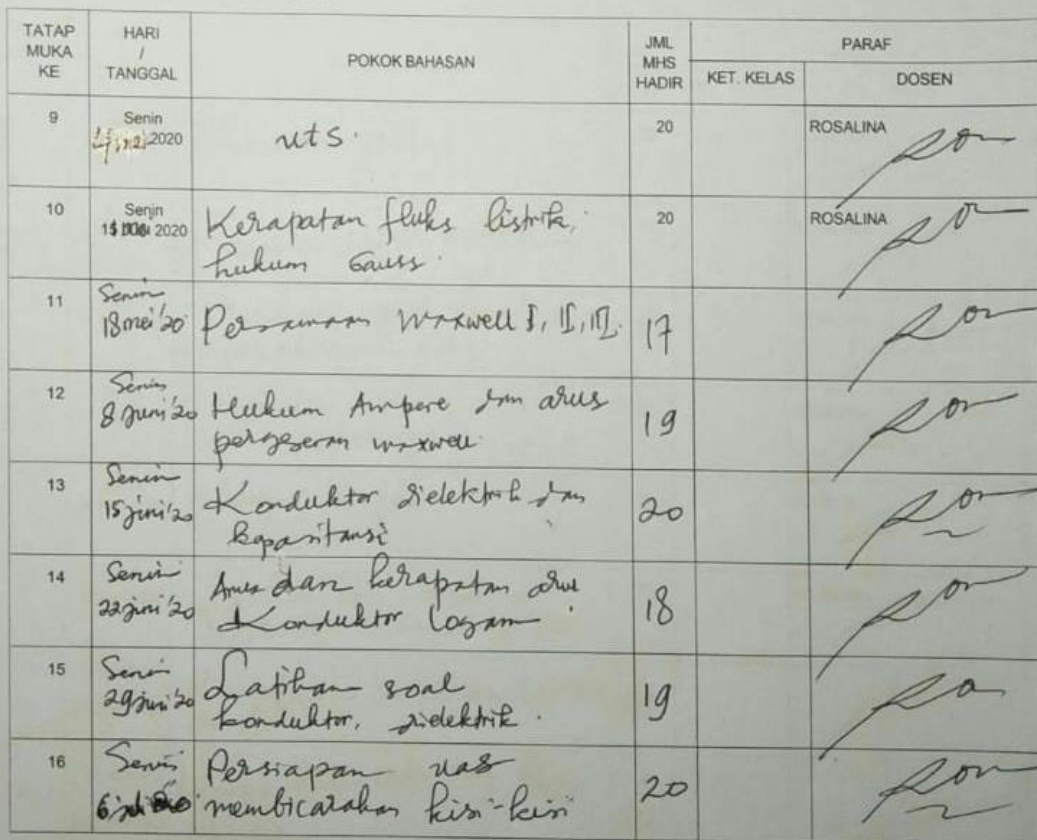 TATAP MUKA KE
HARI / TANGGAL
POKOK BAHASAN
JML MHS HADIR
PARAF
KET. KELAS
DOSEN
9
Senin
2020
uts.
20
ROSALINA
10
Senin
2020
Kerapatan fluks listrik,
hukum Gauss.
20
ROSALINA
11
Senin
18 mei '20
Persamaan Maxwell I, II, III.
17
12
Senin
8 Juni '20
Hukum Ampere dan arus
pergeseran maxwell
19
13
Senin
15 juni '20
Konduktor dielektrik dan
kapasitansi
20
14
Senin
22 juni '20
Arus dan kerapatan arus
Konduktor logam
18
15
Senin
29 juni '20
Latihan soal
konduktor, dielektrik.
19
16
Senin
6
Persiapan uas
membicarakan kisi-kisi
20